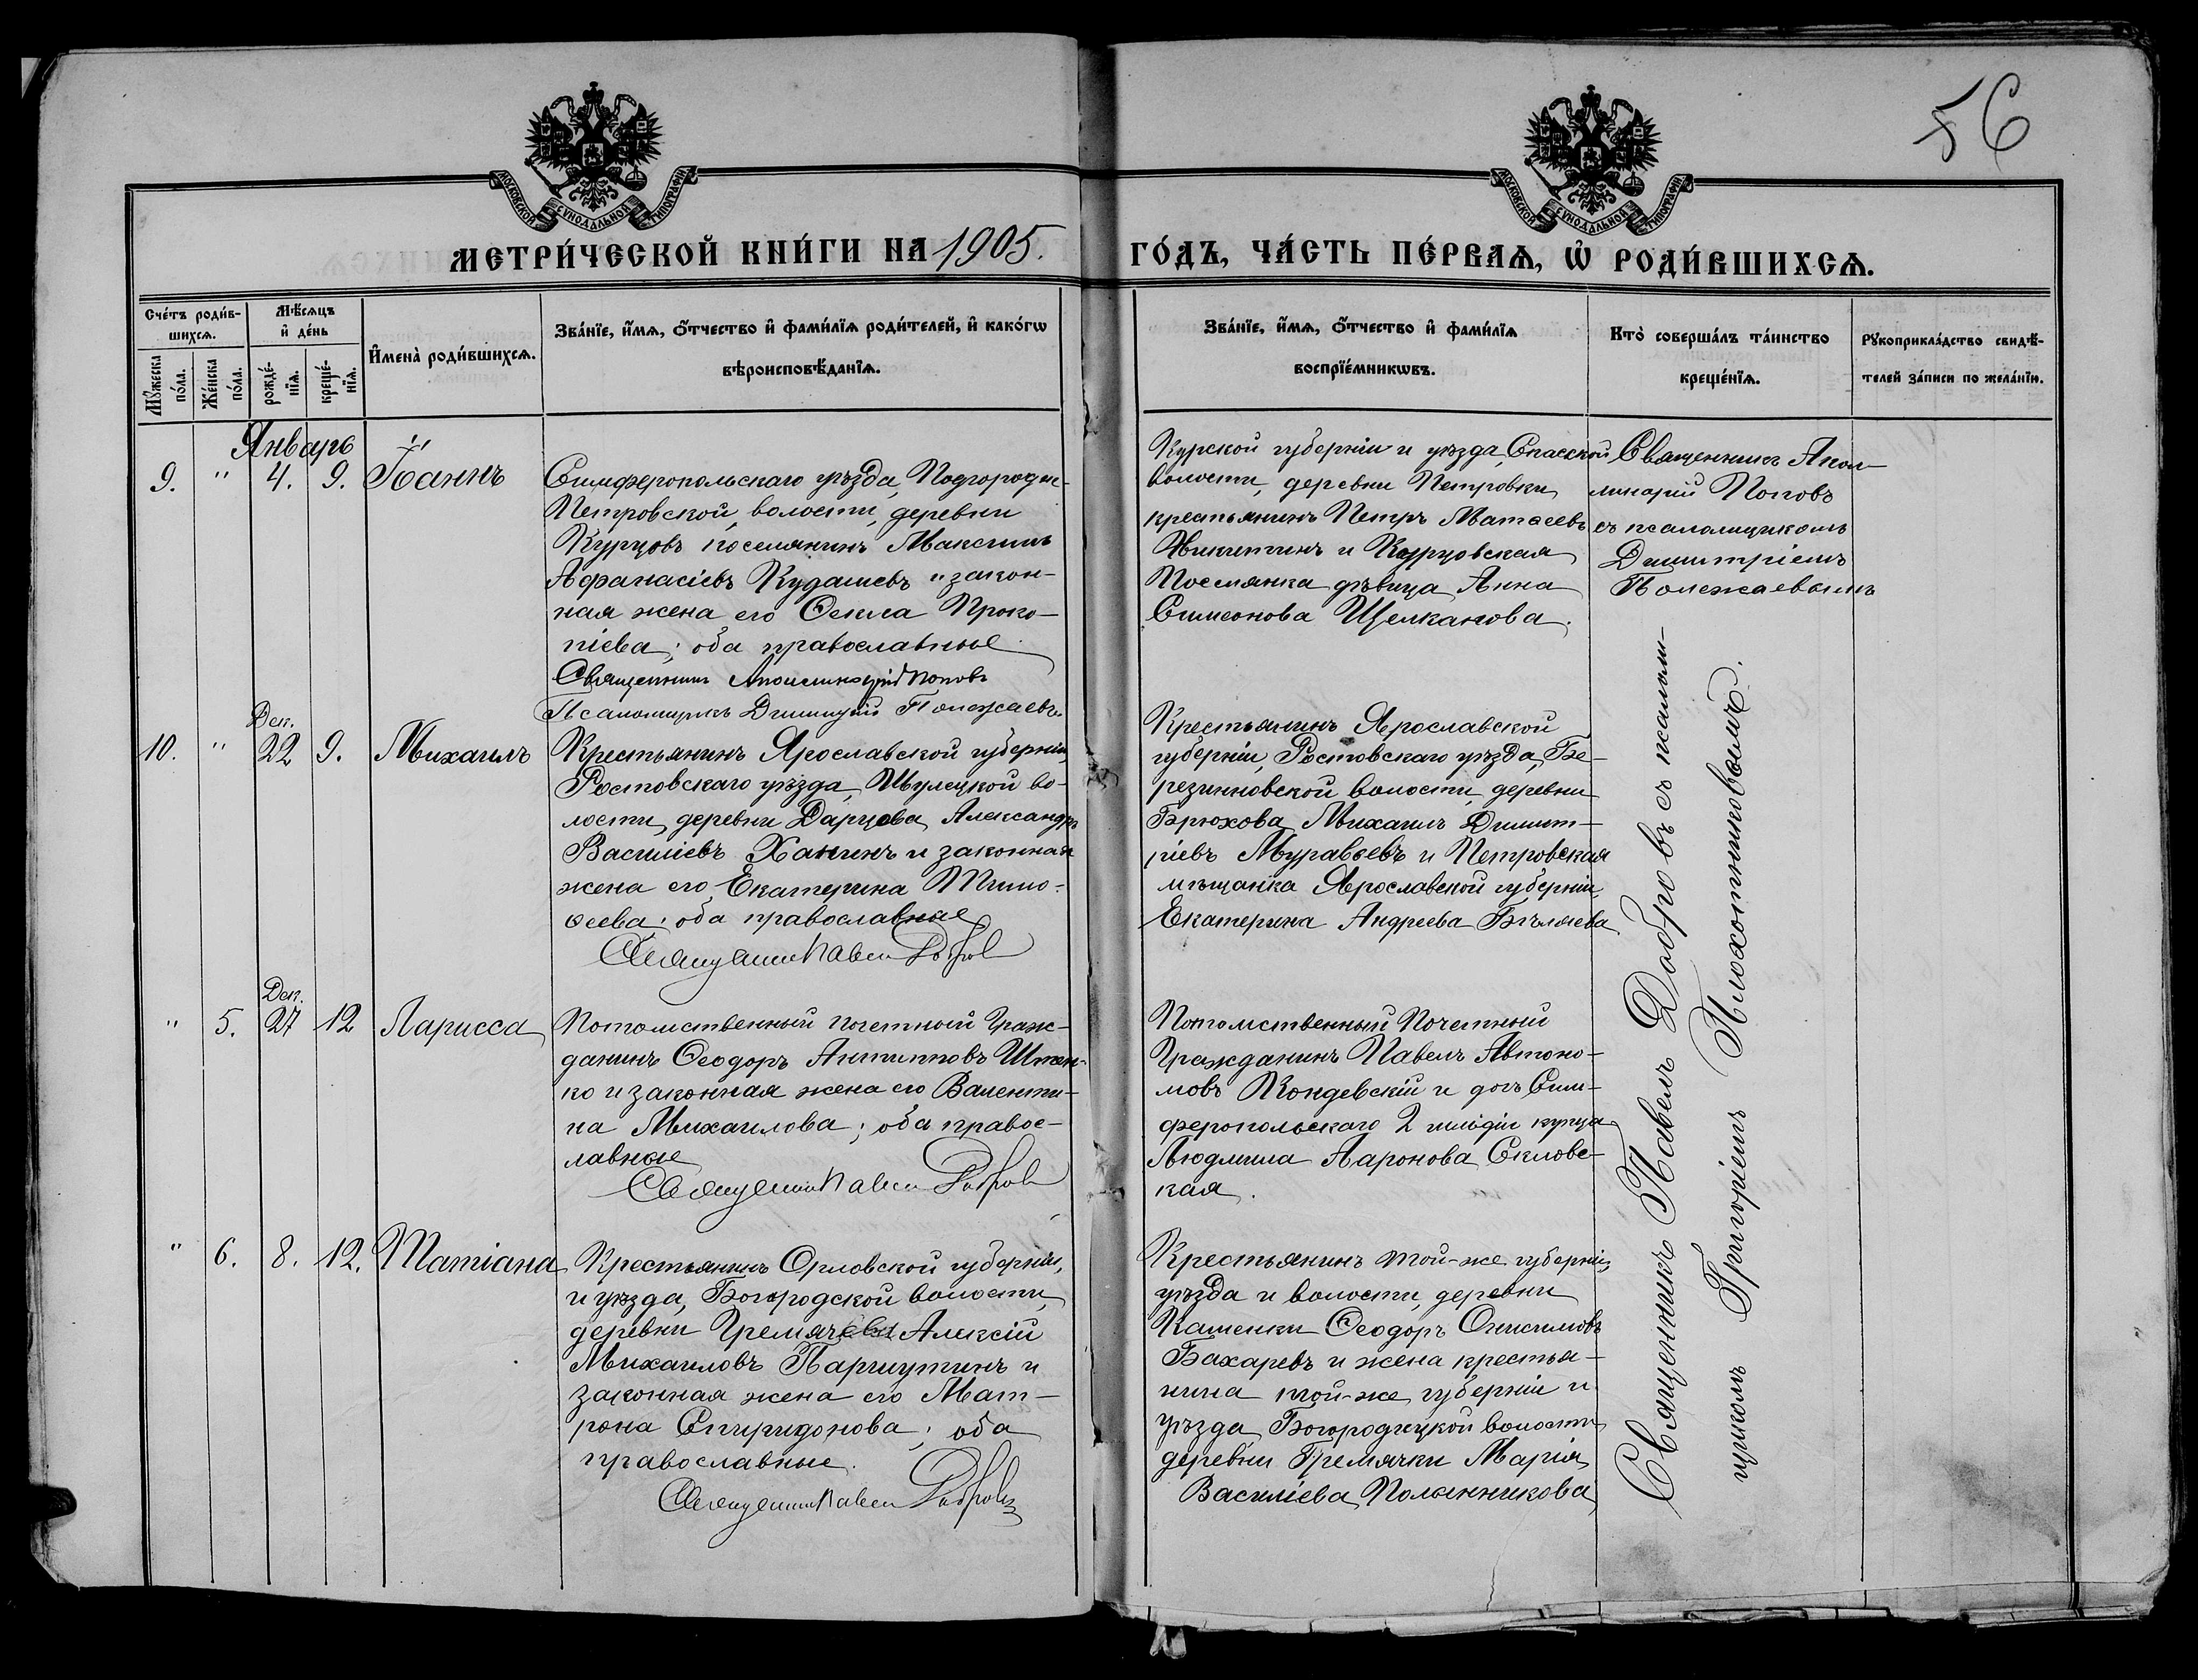 56
МОСКОВСКОЙ СѴНОДАЛЬНОЙ ТИПОГРАФІИ
МОСКОВСКОЙ СѴНОДАЛЬНОЙ ТИПОГРАФІИ
МЕТРИ́ЧЕСКОЙ КНИ́ГИ НА 1905.
ГО́ДЪ, ЧА́СТЬ ПЕ́РВАѦ, Ѿ РОДИ́ВШИХСѦ.
Сче́тъ роди́в-
шихсѧ.
Мѣ́сѧцъ
и҆ де́нь
Мꙋ́жеска
по́ла.
Же́нска
по́ла.
рожде́-
нїѧ.
креще́-
нїѧ.
И҆мена̀ роди́вшихсѧ.
Зва́нїе, и҆́мѧ, ѻ҆́тчество и҆ фами́лїѧ роди́телей, и҆ како́гѡ
вѣроисповѣ́данїѧ.
Зва́нїе, и҆́мѧ, ѻ҆́тчество и҆ фами́лїѧ
воспрїе́мникѡвъ.
Кто̀ соверша́лъ та́инство
креще́нїѧ.
Рꙋкоприкла́дство свидѣ́-
телей за́писи по жела́нїю.
Январь
9. " 4. 9. Іоаннъ
Симферопольскаго уѣзда, Подгородне-
Петровской волости, деревни
Курцовъ поселянинъ Максимъ
Аѳанасіевъ Кудашевъ и закон-
ная жена его Ѳекла Проко-
піева; оба православные
Священникъ Аполлинарій Поповъ
Псаломщикъ Димитрій Полежаевъ
Курской губерніи и уѣзда, Спасской
волости, деревни Петровки
крестьянинъ Петръ Матѳеевъ
Никитинъ и Курцовская
Поселянка дѣвица Анна
Симеонова Щелканова.
Священникъ Апол-
линарій Поповъ
съ псаломщикомъ
Димитріемъ
Полежаевымъ
Дек.
10. " 22 9. Михаилъ
Крестьянинъ Ярославской губерніи,
Ростовскаго уѣзда, Шулецкой во-
лости, деревни Дарцова, Александръ
Василіевъ Ханинъ и законная
жена его Екатерина Тимо-
ѳеева; оба православные
Священникъ Павелъ Добровъ
Крестьянинъ Ярославской
губерніи, Ростовскаго уѣзда, Бе-
резинковской волости, деревни
Брюхова, Михаилъ Димит-
ріевъ Муравьевъ и Петровская
мѣщанка Ярославской губерніи,
Екатерина Андреева Бѣляева
Дек.
" 5. 27 12 Ларисса
Потомственный почетный Граж-
данинъ Ѳеодоръ Антиповъ Штен-
ко и законная жена его Валенти-
на Михаилова; оба правос-
лавные
Священникъ Павелъ Добровъ
Потомственный Почетный
Гражданинъ Павелъ Автоно-
мовъ Кондевскій и дочь Сим-
феропольскаго 2 гильдіи купца
Людмила Ааронова Склове-
кая.
" 6. 8. 12. Татіана
Крестьянинъ Орловской губерніи,
и уѣзда, Богородской волости,
деревни Алексій
Михаиловъ Паршутинъ и
законная жена его Мат-
рона Спиридонова; оба
православные.
Священникъ Павелъ Добровъ
Крестьянинъ той-же губерніи,
уѣзда и волости, деревни
Каменки Ѳеодоръ Онисимовъ
Бахаревъ и жена крестья-
нина той-же губерніи и
уѣзда Богородицкой волости
деревни Гремячки Марія
Василіева Полынникова
Священникъ Павелъ Добровъ съ псалом-
щикомъ Григоріемъ Плохотниковымъ.